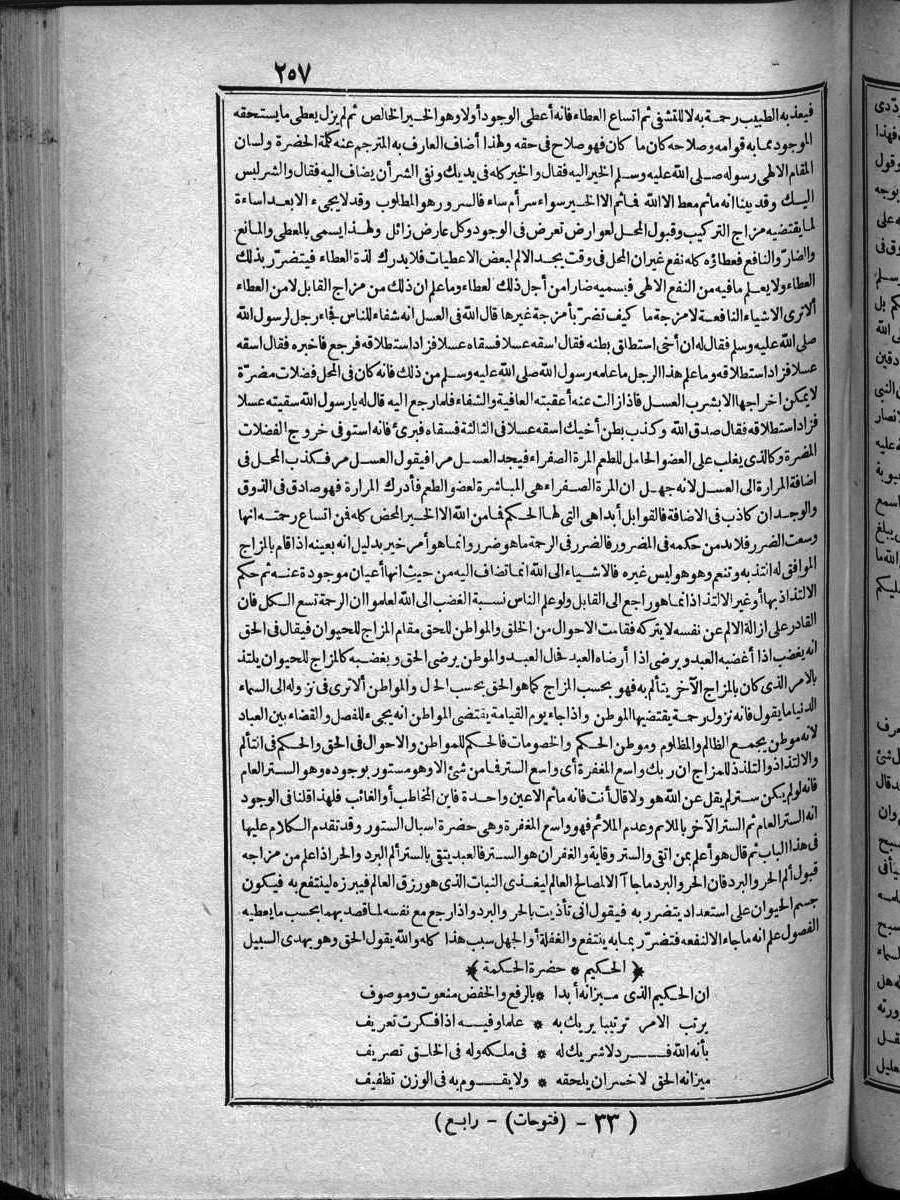 ٢٥٧
فيعذبه الطبيب رحمة به لا للتشفى ثم اتساع العطاء فانه أعطى الوجود أولا وهو الخير الخالص ثم لم يزل يعطى ما يستحقه
الموجود مما به قوامه وصلاحه كان ما كان فهو صلاح فى حقه ولهذا أضاف العارف به المترجم عنه كلمة الحضرة ولسان
المقام الالهى رسوله صلى الله عليه وسلم الخير اليه فقال والخير كله فى يديك ونفى الشر أن يضاف اليه فقال والشر ليس
اليك وقد بينا انه ما ثم معط الا الله فما ثم الا الخير سواء سر أم ساء فالسرور هو المطلوب وقد لا يجىء الا بعد اساءة
لما يقتضيه مزاج التركيب وقبول المحل لعوارض تعرض فى الوجود وكل عارض زائل ولهذا يسمى بالمعطى والمانع
والضار والنافع فعطاؤه كله نفع غير ان المحل فى وقت يجد الالم لبعض الاعطيات فلا يدرك لذة العطاء فيتضرر بذلك
العطاء ولا يعلم ما فيه من النفع الالهى فيسميه ضارا من أجل ذلك لعطاء وما علم ان ذلك من مزاج القابل لا من العطاء
ألا ترى الاشياء النافعة لامزجة ما كيف تضر بأمزجة غيرها قال الله فى العسل انه شفاء للناس فجاء رجل لرسول الله
صلى الله عليه وسلم فقال له ان أخى استطلق بطنه فقال اسقه عسلا فسقاه عسلا فزاد استطلاقه فرجع فاخبره فقال اسقه
عسلا فزاد استطلاقه وما علم هذا الرجل ما علمه رسول الله صلى الله عليه وسلم من ذلك فانه كان فى المحل فضلات مضرة
لا يمكن اخراجها الا بشرب العسل فاذا زالت عنه أعقبته العافية والشفاء فلما رجع اليه قال له يا رسول الله سقيته عسلا
فزاد استطلاقه فقال صدق الله وكذب بطن أخيك اسقه عسلا فى الثالثة فسقاه فبرئ فانه استوفى خروج الفضلات
المضرة وكالذى يغلب على العضو الحامل للطعم المرة الصفراء فيجد العسل مرا فيقول العسل مر فكذب المحل فى
اضافة المرارة الى العسل لانه جهل ان المرة الصفراء هى المباشرة لعضو الطعم فأدرك المرارة فهو صادق فى الذوق
والوجدان كاذب فى الاضافة فالقوابل أبدا هى التى لها الحكم فما من الله الا الخير المحض كله فمن اتساع رحمته انها
وسعت الضرر فلا بد من حكمه فى المضرور فالضرر فى الرحمة ما هو ضرر وانما هو أمر خير بدليل انه بعينه اذا قام بالمزاج
الموافق له التذ به وتنعم وهو هو ليس غيره فالاشياء الى الله انما تضاف اليه من حيث انها أعيان موجودة عنه ثم حكم
الالتذاذ بها أو غير الالتذاذ انما هو راجع الى القابل ولو علم الناس نسبة الغضب الى الله لعلموا ان الرحمة تسع الكل فان
القادر على ازالة الالم عن نفسه لا يتركه فقامت الاحوال من الخلق والمواطن للحق مقام المزاج للحيوان فيقال فى الحق
انه يغضب اذا أغضبه العبد ويرضى اذا أرضاه العبد فحال العبد والموطن يرضى الحق ويغضبه كالمزاج للحيوان يلتذ
بالامر الذى كان بالمزاج الآخر يتألم به فهو بحسب المزاج كما هو الحق بحسب الحال والمواطن ألا ترى فى نزوله الى السماء
الدنيا ما يقول فانه نزول رحمة يقتضيها الموطن واذا جاء يوم القيامة يقتضى المواطن انه يجىء للفصل والقضاء بين العباد
لانه موطن يجمع الظالم والمظلوم وموطن الحكم والخصومات فالحكم للمواطن والاحوال فى الحق والحكم فى التألم
والالتذاذ والتلذذ للمزاج ان ربك واسع المغفرة أى واسع الستر فما من شئ الا وهو مستور بوجوده وهو الستر العام
فانه لو لم يكن ستر لم يقل عن الله هو ولا قال أنت فانه ما ثم الا عين واحدة فاين المخاطب أو الغائب فلهذا قلنا فى الوجود
انه الستر العام ثم الستر الآخر بالملائم وعدم الملائم فهو واسع المغفرة وهى حضرة اسبال الستور وقد تقدم الكلام عليها
فى هذا الباب ثم قال هو أعلم بمن اتقى والستر وقاية والغفران هو الستر فالعبد يتقى بالستر ألم البرد والحر اذا علم من مزاجه
قبول ألم الحر والبرد فان الحر والبرد ما جاآ الا لمصالح العالم ليغذى النبات الذى هو رزق العالم فيبرزه لينتفع به فيكون
جسم الحيوان على استعداد يتضرر به فيقول انى تأذيت بالحر والبرد واذا رجع مع نفسه لما قصد بهما بحسب ما يعطيه
الفصول علم انه ما جاء الا لنفعه فتضرر بما به ينتفع والغفلة أو الجهل سبب هذا كله والله يقول الحق وهو يهدى السبيل
﴿ الحكيم * حضرة الحكمة ﴾
ان الحكيم الذى ميزانه أبدا * بالرفع والخفض منعوت وموصوف
يرتب الامر ترتيبا يريك به * علما وفيه اذا فكرت تعريف
بأنه الله فرد لا شريك له * فى ملكه وله فى الخلق تصريف
ميزانه الحق لا خسران يلحقه * ولا يقوم به فى الوزن تطفيف
( ٣٣ - (فتوحات) - رابع )